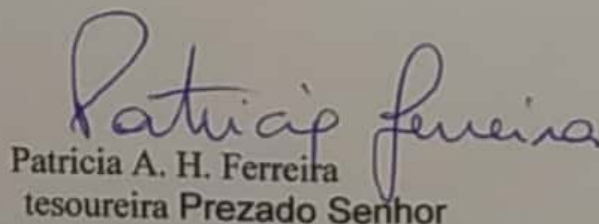 Patricia Ferreira
Patricia A. H. Ferreira
tesoureira Prezado Senhor